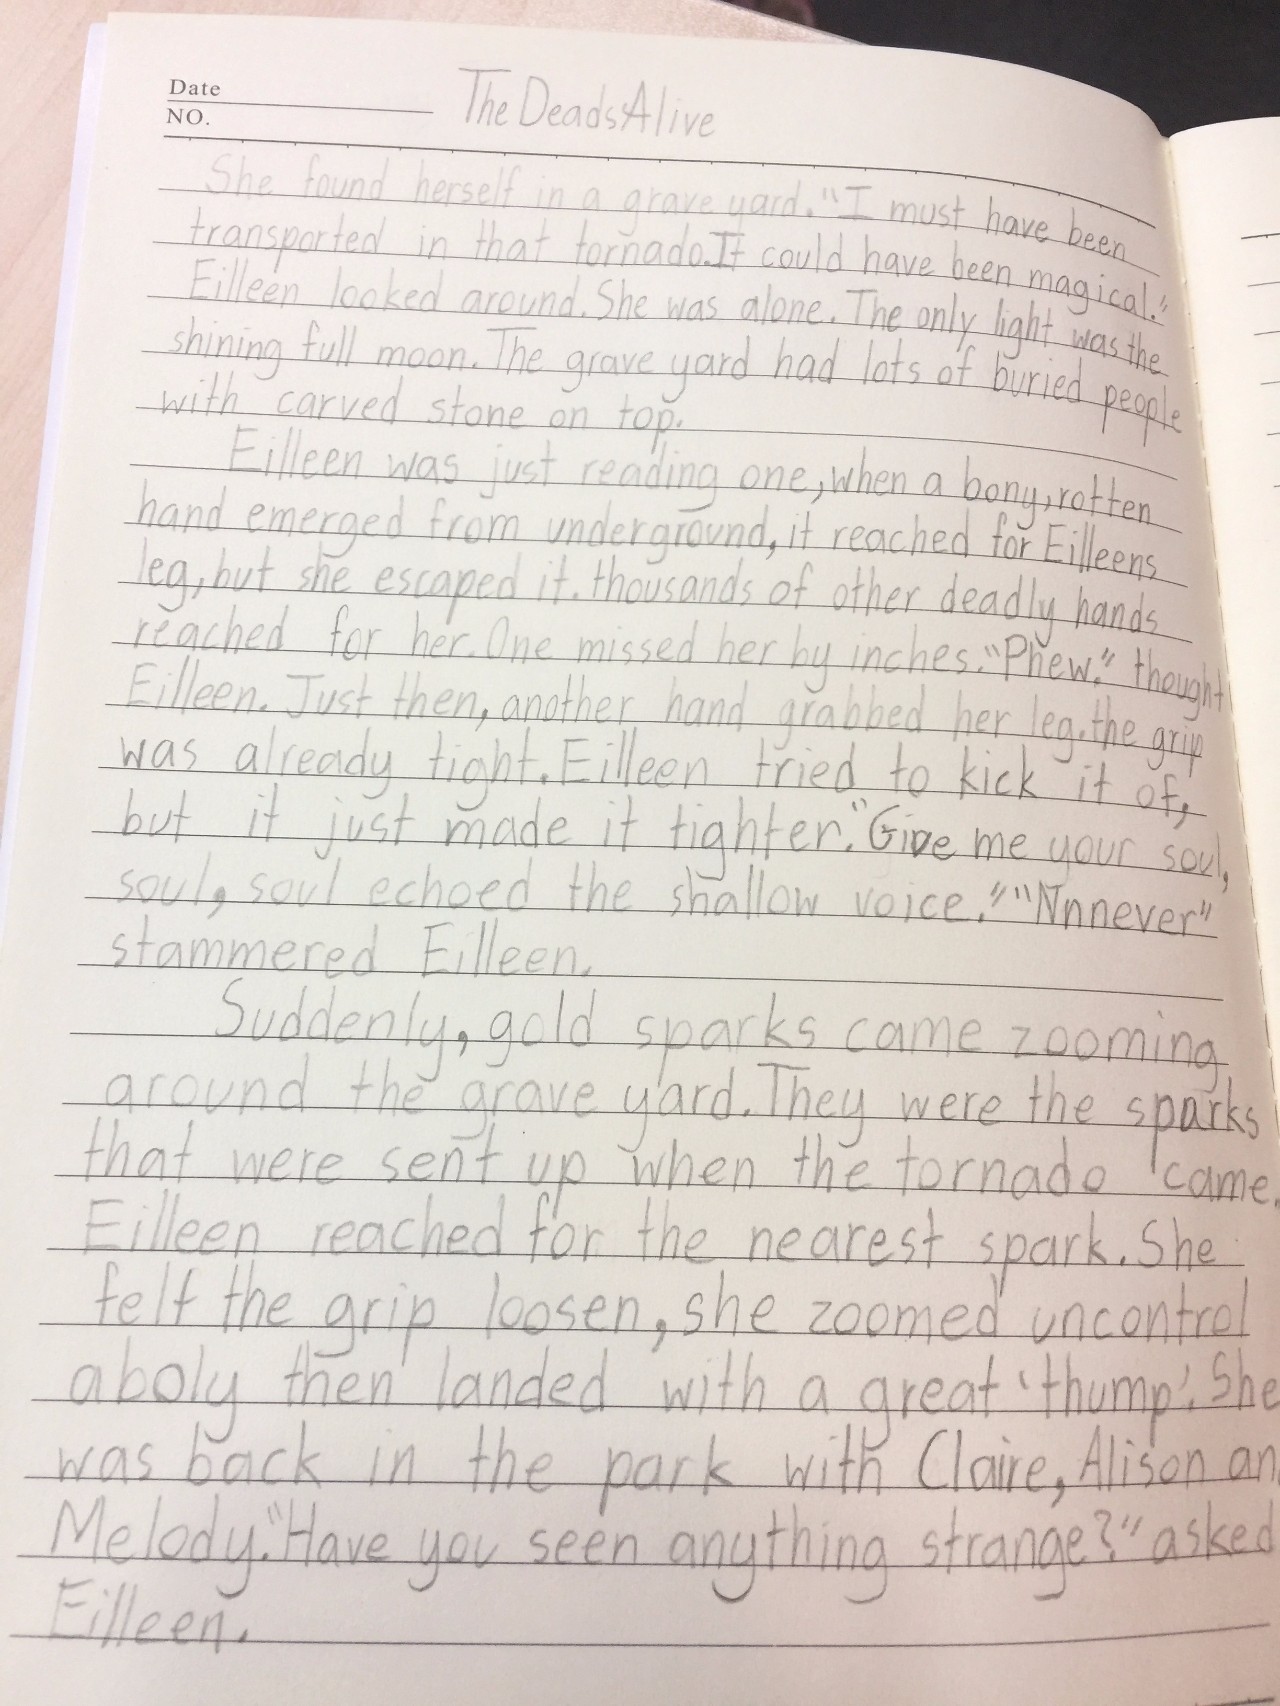 Date
The Deads Alive
NO.
She found herself in a grave yard. "I must have been
transported in that tornado. It could have been magical."
Eilleen looked around. She was alone. The only light was the
shining full moon. The grave yard had lots of buried people
with carved stone on top.
Eilleen was just reading one, when a bony, rotten
hand emerged from underground, it reached for Eilleens
leg, but she escaped it. thousands of other deadly hands
reached for her. One missed her by inches. "Phew." thought
Eilleen. Just then, another hand grabbed her leg. the grip
was already tight. Eilleen tried to kick it of,
but it just made it tighter. "Give me your soul,
soul, soul echoed the shallow voice." "Nnnever"
stammered Eilleen.
Suddenly, gold sparks came zooming
around the grave yard. They were the sparks
that were sent up when the tornado came.
Eilleen reached for the nearest spark. She
felt the grip loosen, she zoomed uncontrol
aboly then landed with a great 'thump'. She
was back in the park with Claire, Alison an
Melody. "Have you seen anything strange?" asked
Eilleen.